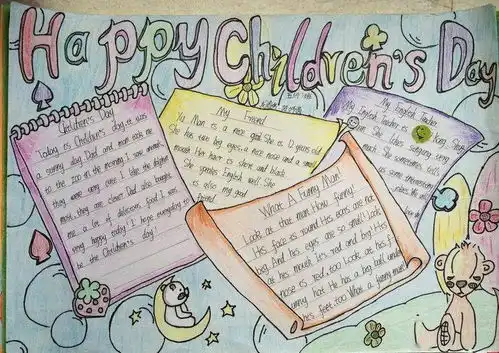 Happy Children's Day
Children's Day
Today is Children's day, it was
a sunny day. Dad and mom took me
to the zoo in the morning. I saw animals
they were very cute. I like the
most, they are clever. Dad also bought
me a lot of delicious food. I was
very happy today! I hope everyday to
be the Children's day!
My Friend
Xu Man is a nice girl. She is 12 years old.
She has two big eyes, a nice nose and a small
mouth. Her hair is short and black.
She speaks English well. She
is also my good
friend.
My English Teacher
My English Teacher is
She likes singing very
much. She sometimes tells
us some
What A Funny Man!
Look at that man. How funny!
His face is round. His ears are not
big. And his eyes are so small. Look
at his mouth. It's red and big. His
nose is red, too. Look at his f
unny hat. He has a big ball under
his feet, too. What a funny man!